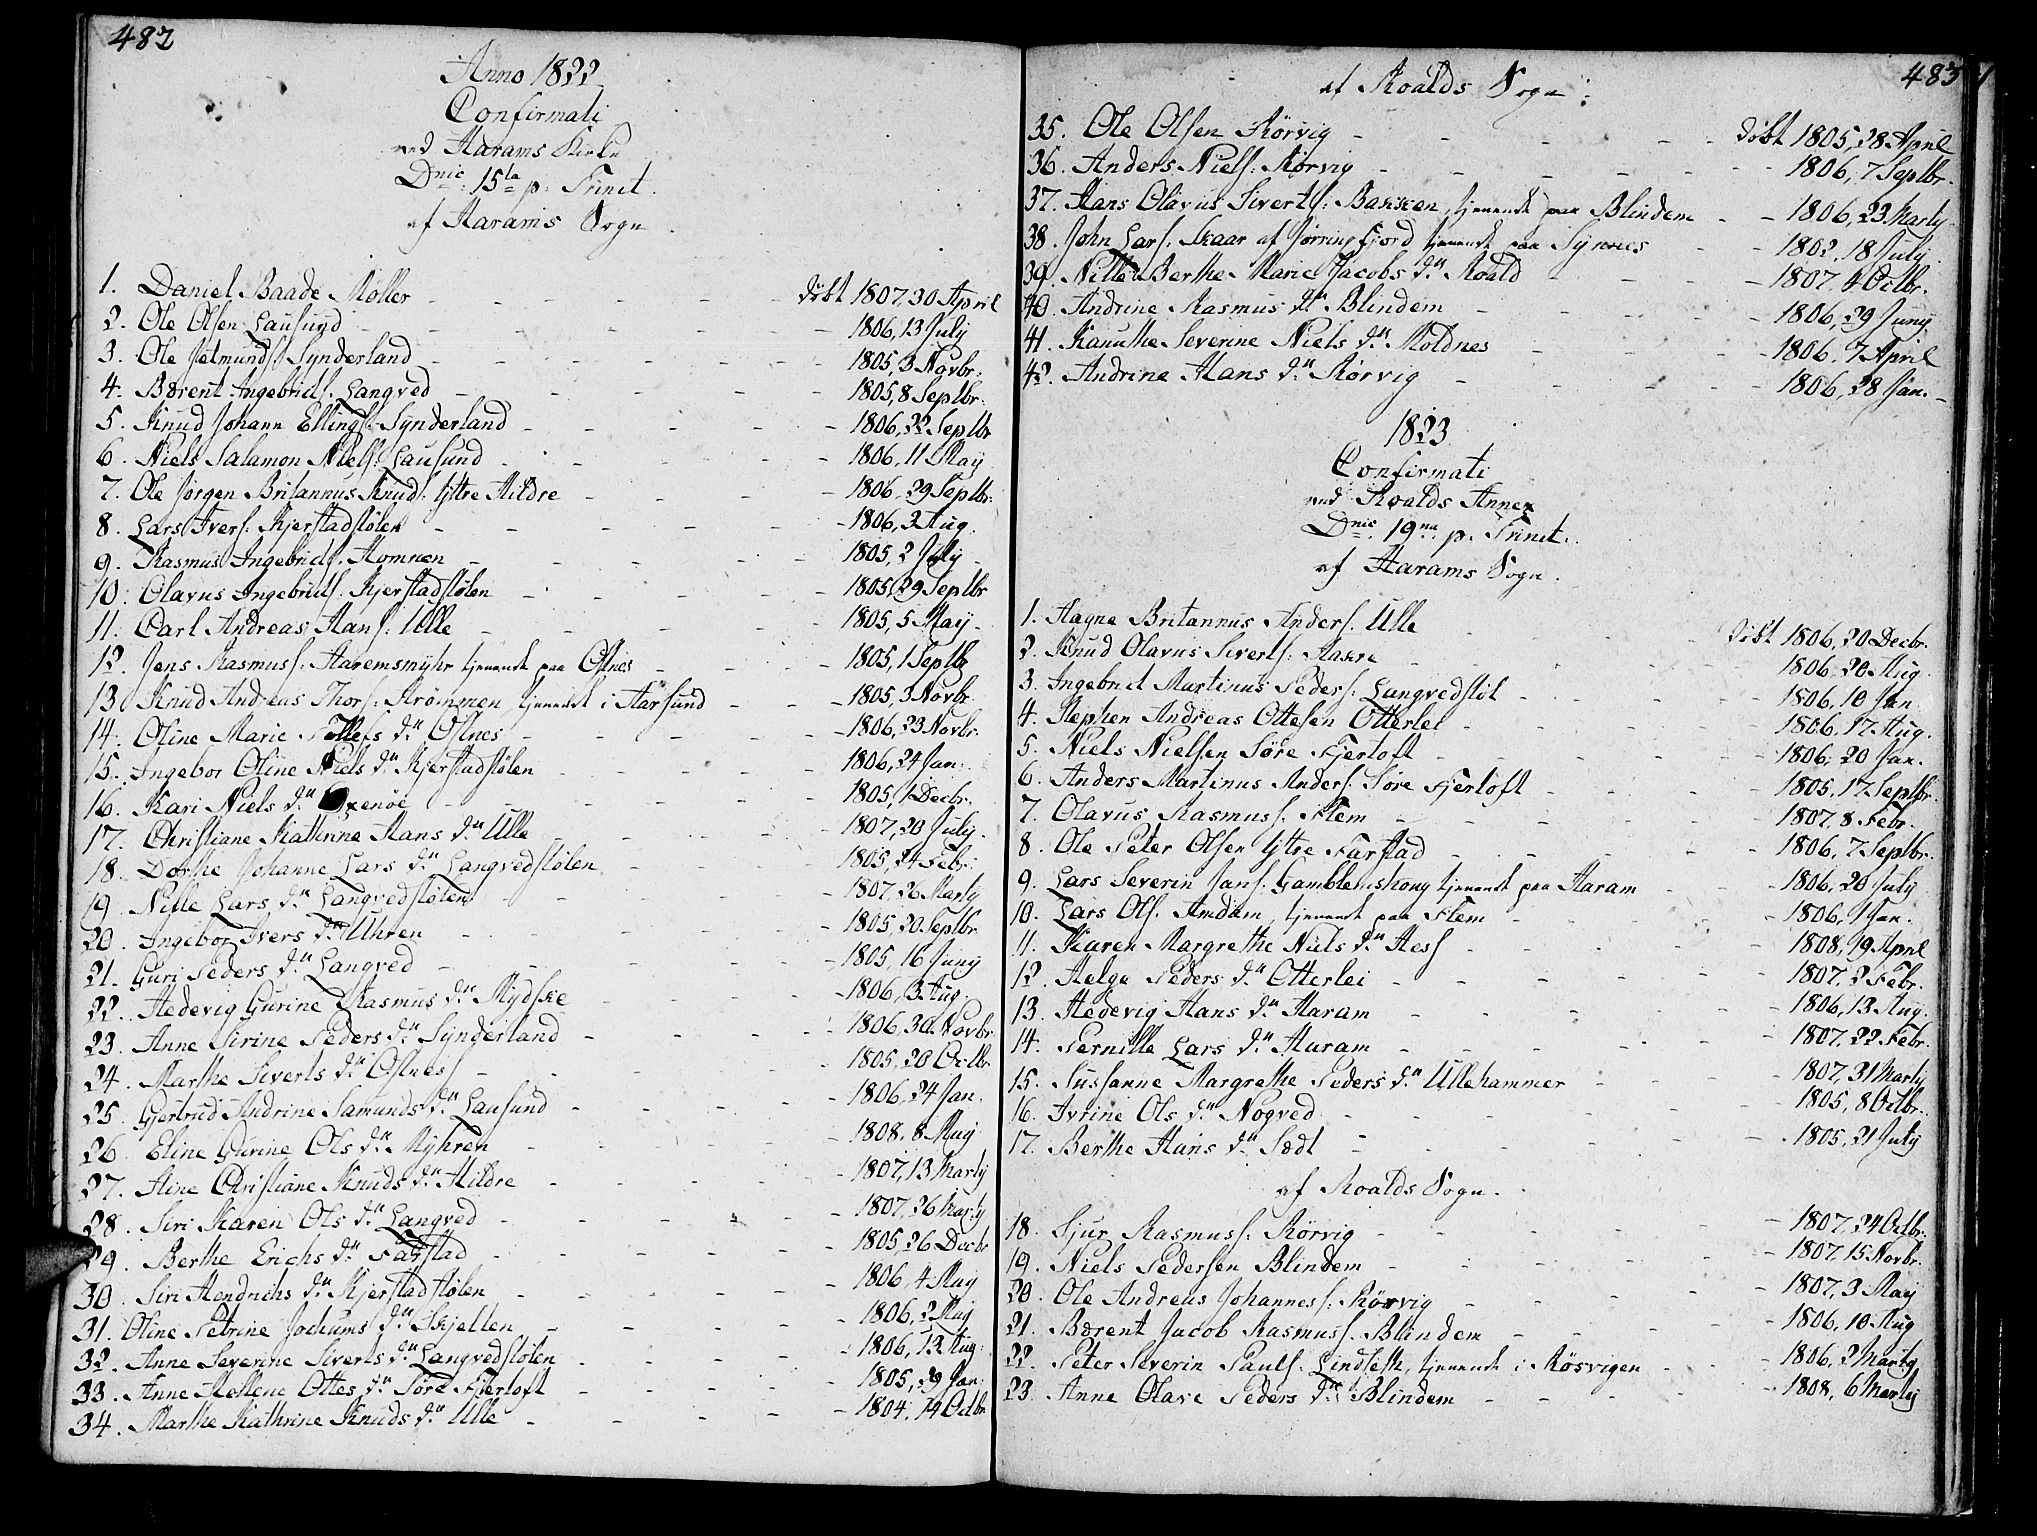 482
Anno 1822
Confirmati
ved Harams Kirke
Dnic: 15ta p: Trinit.
af Harams Sogn.
1. Daniel Baade Møller - døbt 1807, 30 April
2. Ole Olsen Lausund - 1806, 13 July
3. Ole Jetmunds: Synderland - 1805, 3 Novbr:
4. Bærent Ingebrids: Langved - 1805, 8 Septbr:
5. Knud Johann Ellings: Synderland - 1806, 22 Septbr
6. Niels Salamon Niels: Lausund - 1806, 11 May
7. Ole Jørgen Britannus Knuds: Ytre Hildre - 1806, 29 Septbr:
8. Lars Ivers: Kjerstadstølen - 1806, 3 Aug.
9. Rasmus Ingebrids: Homnen - 1805, 2 July
10. Olavus Ingebrids: Kjerstadstølen - 1805, 29 Septbr
11. Carl Andreas Hans: Ulle - 1805, 5 May
12. Jens Rasmuss: Haremsmyhr tjenende paa Ofnes - 1805, 1 Septbr
13. Knud Andreas Thors: Strømmen tjenende i Aarsund - 1805, 3 Novbr.
14. Oline Marie Tollefs dtr Ofnes - 1806, 23 Novbr.
15. Ingebor Oline Niels dtr Kjerstadstølen - 1806, 24 Jan:
16. Kari Niels dtr Oxenöe - 1805, 1 Decbr.
17. Christiane Kathrine Hans dtr Ulle - 1807, 20 July.
18. Dorthe Johanne Lars dtr Langvedstølen - 1805, 24 Febr:
19. Nille Lars dtr Langvedstølen - 1807, 26 Martj
20. Ingebor Ivers dtr Uhren - 1805, 20 Septbr.
21. Guri Peders dtr Langved - 1805, 16 Junj
22. Hedevig Gurine Rasmus dtr Mydske - 1806, 3 Aug.
23. Anne Sirine Peders dtr Synderland - 1806, 30 Novbr.
24. Marthe Siverts dtr Ofnes - 1805, 20 Octbr.
25. Gjertrud Andrine Samunds dtr Lausund - 1806, 24 Jan.
26. Eline Gurine Ols dtr Myhren - 1808, 8 May
27. Aline Christiane Knuds dtr Hildre - 1807, 13 Martj
28. Siri Karen Ols dtr Langved - 1807, 26 Martj
29. Berthe Erichs dtr Farstad - 1805, 26 Decbr
30. Siri Hendrichs dtr Kjerstadstølen - 1806, 4 May
31. Oline Petrine Jochums dtr Skjelten - 1806, 2 May
32. Anne Severine Siverts dtr Langvedstølen - 1806, 12 Aug:
33. Anne Mallene Ottes dtr Søre Fjertoft - 1805, 29 Jan:
34. Marthe Kathrine Knuds dtr Ulle - 1804, 14 Octbr
483
af Roalds Sogn:
35. Ole Olsen Rørvig - døbt 1805, 28 April
36. Anders Niels: Rørvig - 1806, 7 Septbr.
37. Hans Olavus Siverts: Bakken, tjenende paa Blindem - 1806, 23 Martj
38. John Lars: Skaar af Jørringfjord tjenende paa Synnes - 1802, 18 July
39. Nille Berthe Marie Jacobs dtr Roald - 1807, 4 Octbr.
40. Andrine Rasmus dtr Blindem - 1806, 29 Junj
41. Kanuthe Severine Niels dtr Moldnes - 1806, 7 April
42. Andrine Hans dtr Rørvig - 1806, 28 Jan.
1823
Confirmati
ved Roalds Annex
Dnic: 19na p. Trinit.
af Harams Sogn.
1. Hagne Britannus Anders: Ulle - døbt 1806, 20 Decbr.
2. Knud Olavus Siverts: Aakre - 1806, 20 Aug
3. Ingebret Martinus Peders: Langvedstøl - 1806, 10 Jan
4. Stephen Andreas Ottesen Otterlei - 1806, 17 Aug.
5. Niels Nielsen Søre Fjertoft - 1806, 20 Jan.
6. Anders Martinus Anders: Søre Fjertoft - 1805, 17 Septbr.
7. Olavus Rasmuss: Flem - 1807, 8 Febr.
8. Ole Peter Olsen Ytre Farstad - 1806, 7 Septbr.
9. Lars Severin Jans: Gamblemskong tjenende paa Haram - 1806, 20 July
10. Lars Ols: Amdam, tjenende paa Flem - 1806, 1 Jan.
11. Karen Margrethe Niels dtr Hess - 1808, 19 April
12. Helge Peders dtr Otterlei - 1807, 2 Febr.
13. Hedevig Hans dtr Haram - 1806, 13 Aug.
14. Pernille Lars dtr Haram - 1807, 22 Febr.
15. Sussanne Margrethe Peders dtr Ullehammer - 1807, 31 Martj
16. Ivrine Ols dtr Nogved - 1805, 8 Octbr.
17. Berthe Hans dtr Sædt - 1805, 21 July
af Roalds Sogn.
18. Sjur Rasmuss: Rørvig - 1807, 24 Octbr.
19. Niels Pedersen Blindem - 1807, 15 Novbr.
20. Ole Andreas Johanness: Rørvig - 1807, 3 May
21. Bærent Jacob Rasmuss: Blindem - 1806, 10 Aug
22. Peter Severin Pauls: Lindseth, tjenende i Røsvigen - 1806, 2 Martj
23. Anne Olave Peders dtr Blindem - 1808, 6 Martj